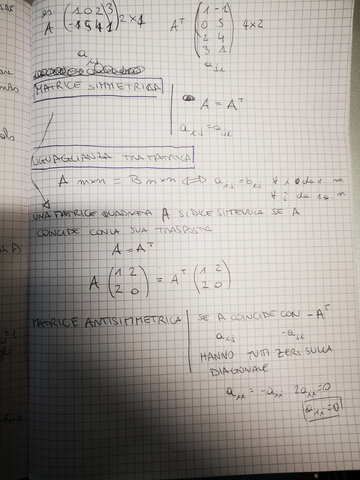 es
A (1 0 2 3
-1 5 4 1) 2 × 4
Aᵀ (1 -1
0 5
2 4
3 1) 4 × 2
a ij
a ji
MATRICE SIMMETRICA
A = Aᵀ
a ij = a ji
UGUAGLIANZA TRA MATRICI
A m×n = B m×n ⇔ a ij = b ij ∀ i da 1 m
∀ j da 1 a n
UNA MATRICE QUADRATA A SI DICE SIMMETRICA SE A
COINCIDE CON LA SUA TRASPOSTA
A = Aᵀ
A (1 2
2 0) = Aᵀ (1 2
2 0)
MATRICE ANTISIMMETRICA
SE A COINCIDE CON -Aᵀ
a ij -a ji
HANNO TUTTI ZERI SULLA
DIAGONALE
a ii = -a ii 2a ii = 0
a ii = 0